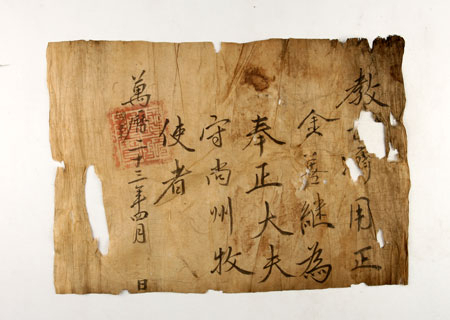 教濟用正
金善継為
奉正大夫
守尚州牧
使者
萬曆二十三年四月 日